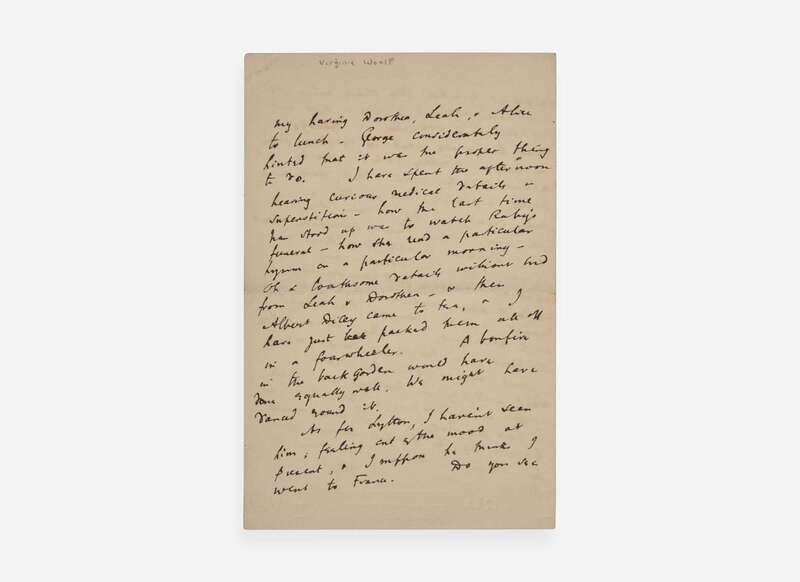 Virginia Woolf
my having Dorothea, Leah, & Alice
to lunch - George considerately
hinted that it was the proper thing
to do. I have spent the afternoon
hearing curious medical details &
superstitions - how the last time
he stood up was to watch Ruby's
funeral - how she read a particular
hymn on a particular morning -
Oh & loathsome details without end
from Leah & Dorothea - & then
Albert Dicey came to tea, & I
have just packed them all off
in a fourwheeler. A bonfire
in the back garden would have
done equally well. We might have
danced round it.
As for Lytton, I haven't seen
him, feeling out of the mood at
present, & I suppose he thinks I
went to France. Do you see